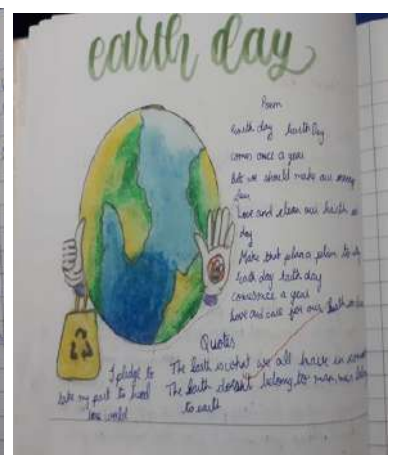 earth day
Poem
Earth day Earth Day
comes once a year
But we should make our
Love and clean our Earth
day
Make that plan a plan to
Earth day Earth day
comes once a year
Love and care for our Earth
Quotes
The Earth is what we all have in
The Earth doesn't belong to man, man
to earth
I pledge to
take my part to
world